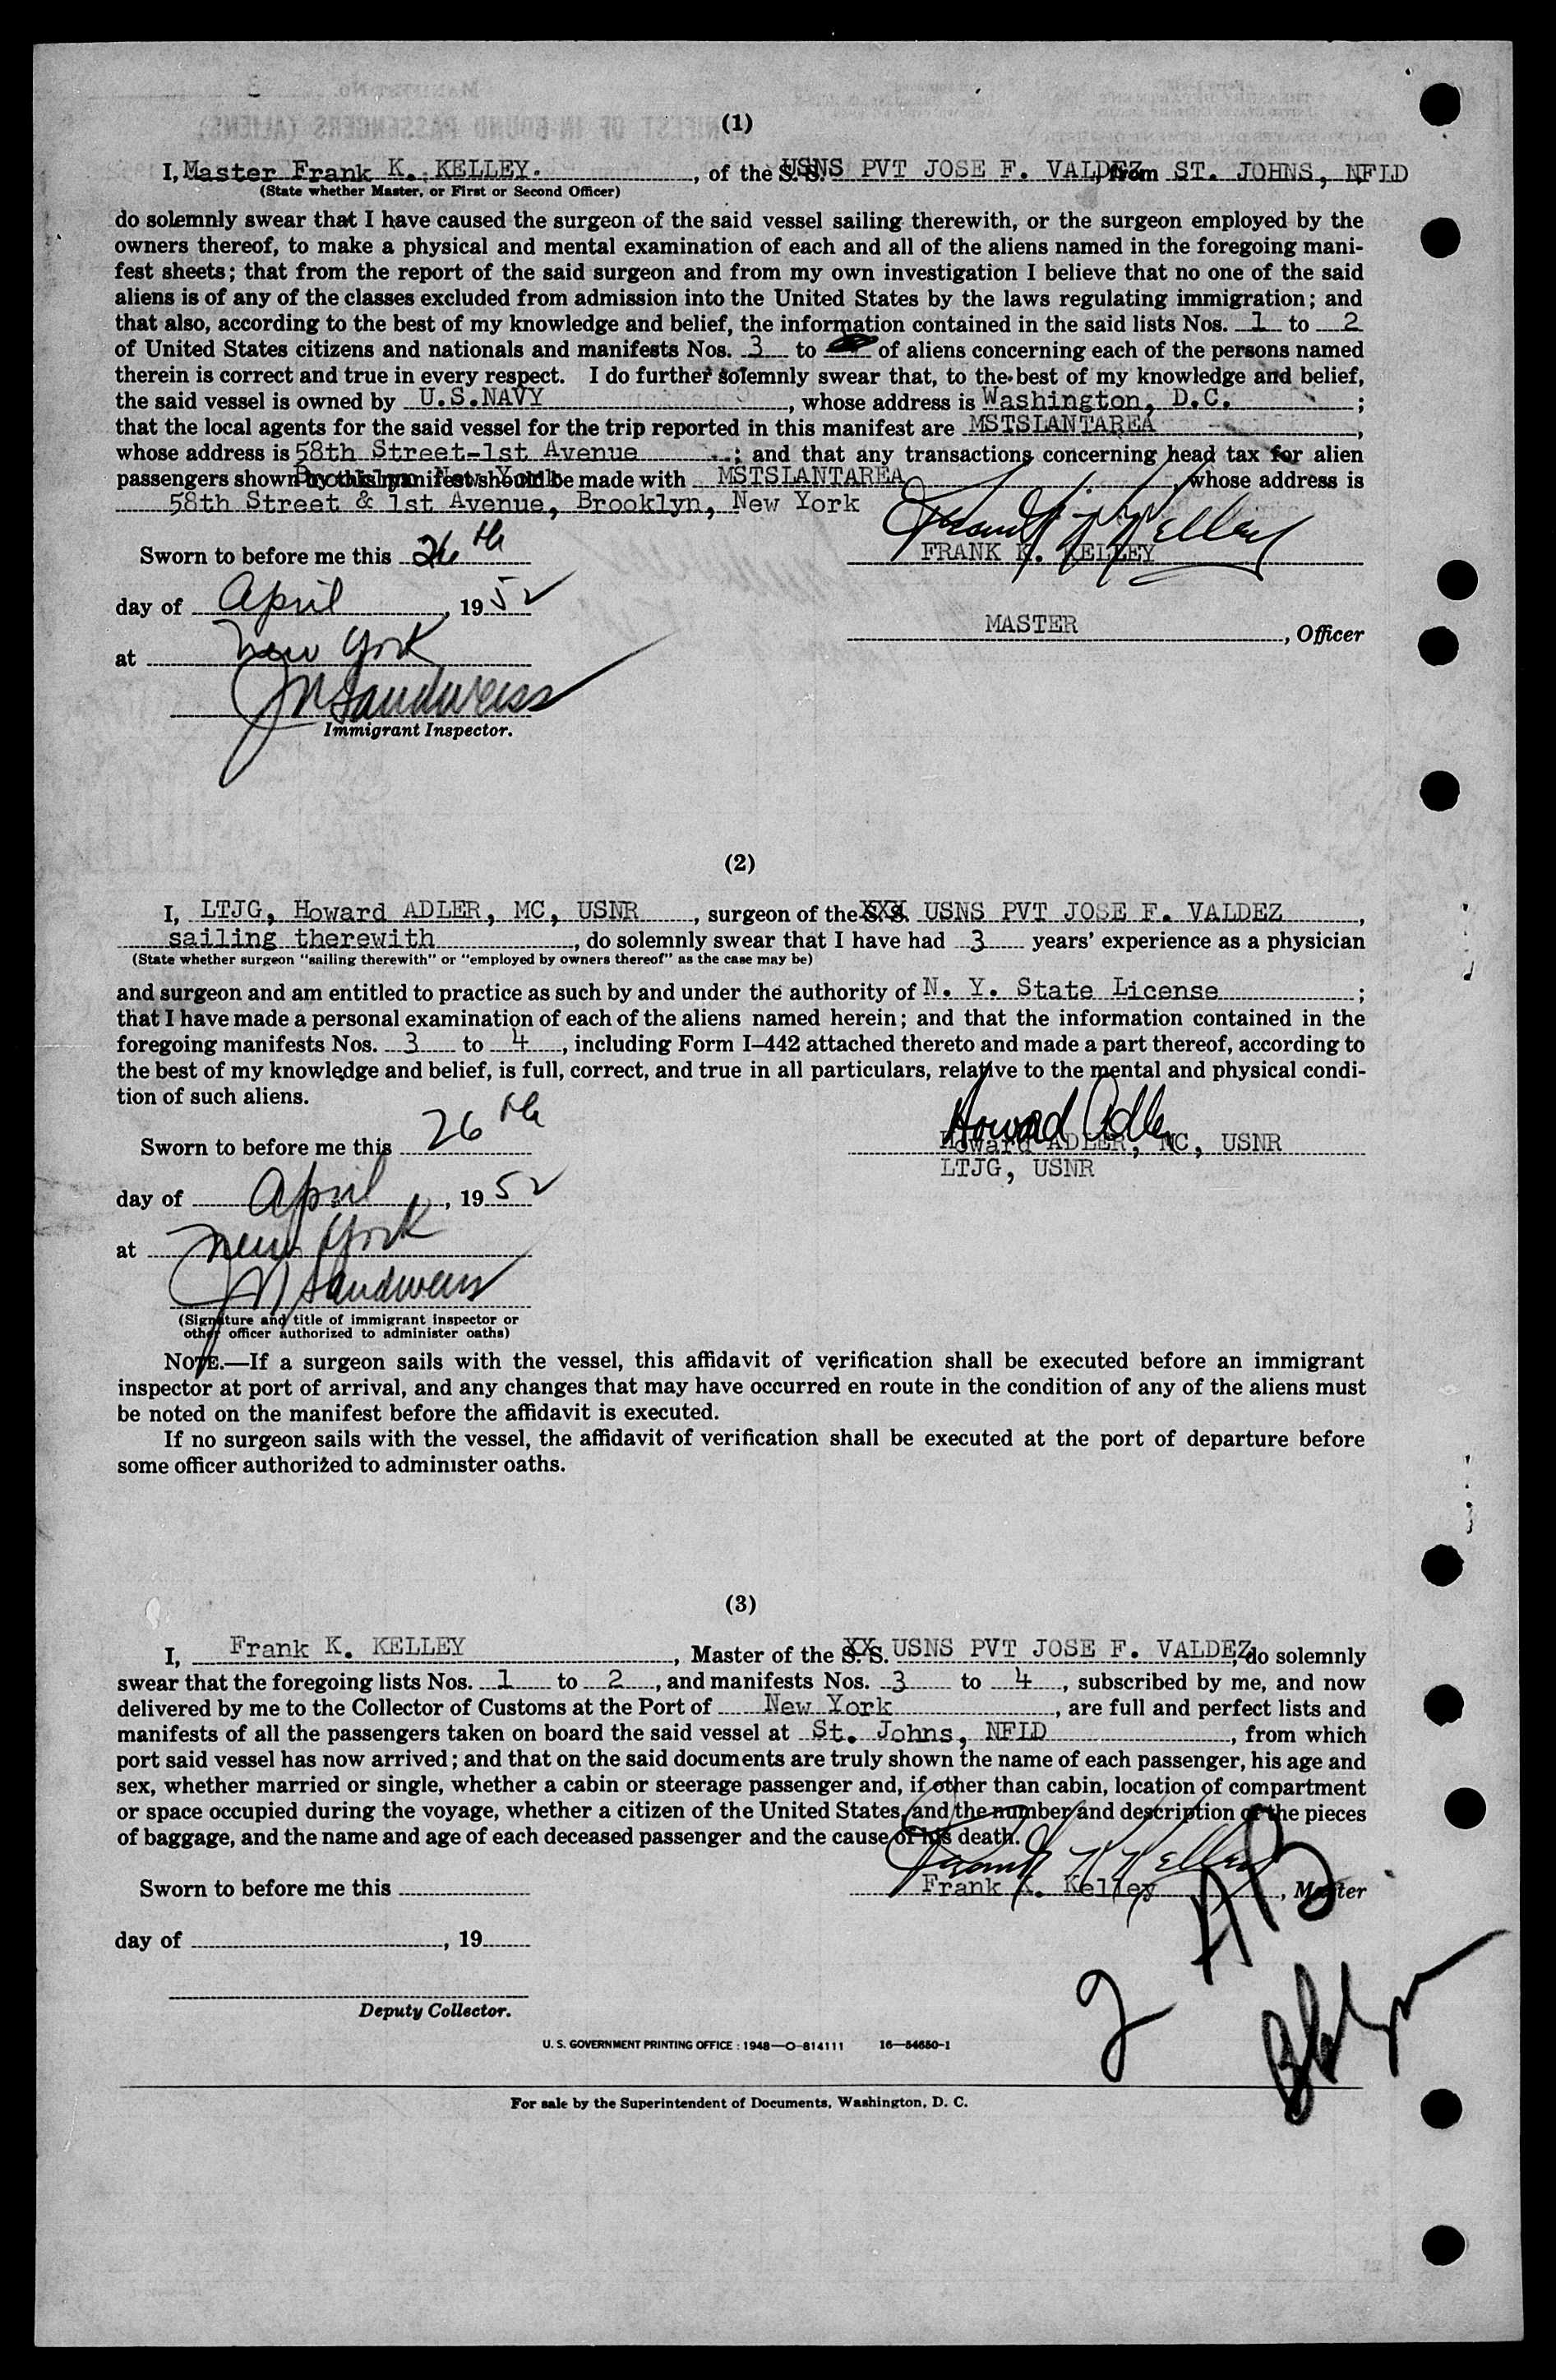 (1)
I, Master Frank K. KELLEY. , of the S. S. USNS PVT JOSE F. VALDEZ, from ST. JOHNS, NFLD
(State whether Master, or First or Second Officer)
do solemnly swear that I have caused the surgeon of the said vessel sailing therewith, or the surgeon employed by the
owners thereof, to make a physical and mental examination of each and all of the aliens named in the foregoing mani-
fest sheets; that from the report of the said surgeon and from my own investigation I believe that no one of the said
aliens is of any of the classes excluded from admission into the United States by the laws regulating immigration; and
that also, according to the best of my knowledge and belief, the information contained in the said lists Nos. 1 to 2
of United States citizens and nationals and manifests Nos. 3 to of aliens concerning each of the persons named
therein is correct and true in every respect. I do further solemnly swear that, to the best of my knowledge and belief,
the said vessel is owned by U.S.NAVY , whose address is Washington, D.C. ;
that the local agents for the said vessel for the trip reported in this manifest are MSTSLANTAREA ,
whose address is 58th Street-1st Avenue ; and that any transactions concerning head tax for alien
Brooklyn New York
passengers shown by this manifest should be made with MSTSLANTAREA , whose address is
58th Street & 1st Avenue, Brooklyn, New York
Frank K Kelley
Sworn to before me this 26th
FRANK K. KELLEY
day of April , 1952
MASTER , Officer
at New York
J M Sandweiss
Immigrant Inspector.
(2)
I, LTJG, Howard ADLER, MC, USNR , surgeon of the S.S. XXX USNS PVT JOSE F. VALDEZ ,
sailing therewith , do solemnly swear that I have had 3 years' experience as a physician
(State whether surgeon "sailing therewith" or "employed by owners thereof" as the case may be)
and surgeon and am entitled to practice as such by and under the authority of N. Y. State License ;
that I have made a personal examination of each of the aliens named herein; and that the information contained in the
foregoing manifests Nos. 3 to 4 , including Form I-442 attached thereto and made a part thereof, according to
the best of my knowledge and belief, is full, correct, and true in all particulars, relative to the mental and physical condi-
tion of such aliens.
Howard Adler
Sworn to before me this 26th
Howard ADLER, MC, USNR
LTJG, USNR
day of April , 1952
at New York
J M Sandweiss
(Signature and title of immigrant inspector or
other officer authorized to administer oaths)
NOTE.—If a surgeon sails with the vessel, this affidavit of verification shall be executed before an immigrant
inspector at port of arrival, and any changes that may have occurred en route in the condition of any of the aliens must
be noted on the manifest before the affidavit is executed.
If no surgeon sails with the vessel, the affidavit of verification shall be executed at the port of departure before
some officer authorized to administer oaths.
(3)
I, Frank K. KELLEY , Master of the S. S. XX USNS PVT JOSE F. VALDEZ, do solemnly
swear that the foregoing lists Nos. 1 to 2 , and manifests Nos. 3 to 4 , subscribed by me, and now
delivered by me to the Collector of Customs at the Port of New York , are full and perfect lists and
manifests of all the passengers taken on board the said vessel at St. Johns, NFLD , from which
port said vessel has now arrived; and that on the said documents are truly shown the name of each passenger, his age and
sex, whether married or single, whether a cabin or steerage passenger and, if other than cabin, location of compartment
or space occupied during the voyage, whether a citizen of the United States, and the number and description of the pieces
of baggage, and the name and age of each deceased passenger and the cause of his death.
Frank K Kelley
Sworn to before me this
Frank K. Kelley , Master
day of , 19
Deputy Collector.
U. S. GOVERNMENT PRINTING OFFICE : 1948—O-814111 16—54650-1
For sale by the Superintendent of Documents, Washington, D. C.